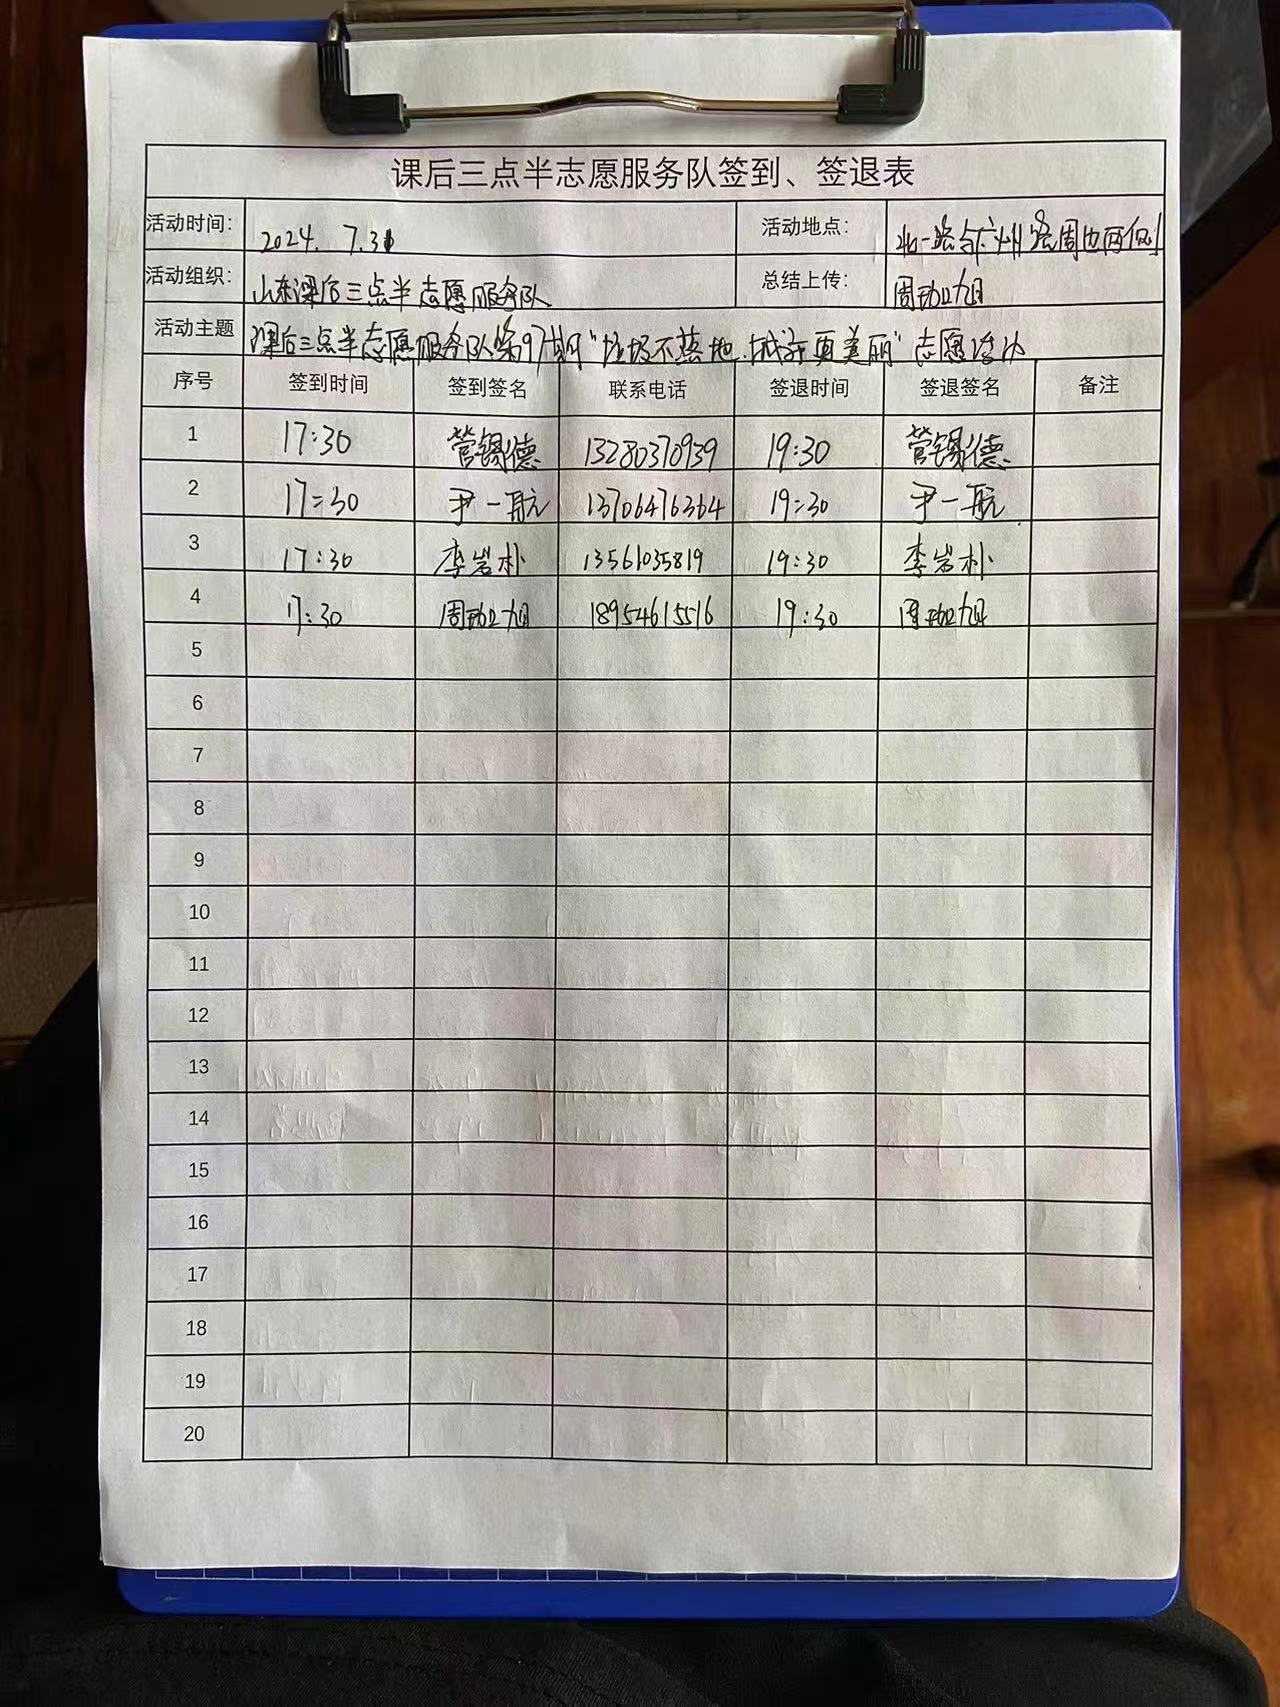 课后三点半志愿服务队签到、签退表
活动时间: 2024. 7.31 活动地点: 北一路与广州路周边两侧
活动组织: 山东课后三点半志愿服务队 总结上传: 周劭旭
活动主题 课后三点半志愿服务队第97期“垃圾不落地.城市更美丽”志愿活动
序号 签到时间 签到签名 联系电话 签退时间 签退签名 备注
1 17:30 管锡德 13280370939 19:30 管锡德
2 17:30 尹一航 13706476364 19:30 尹一航
3 17:30 李岩朴 13561035819 19:30 李岩朴
4 17:30 周劭旭 18954615516 19:30 周劭旭
5
6
7
8
9
10
11
12
13
14
15
16
17
18
19
20